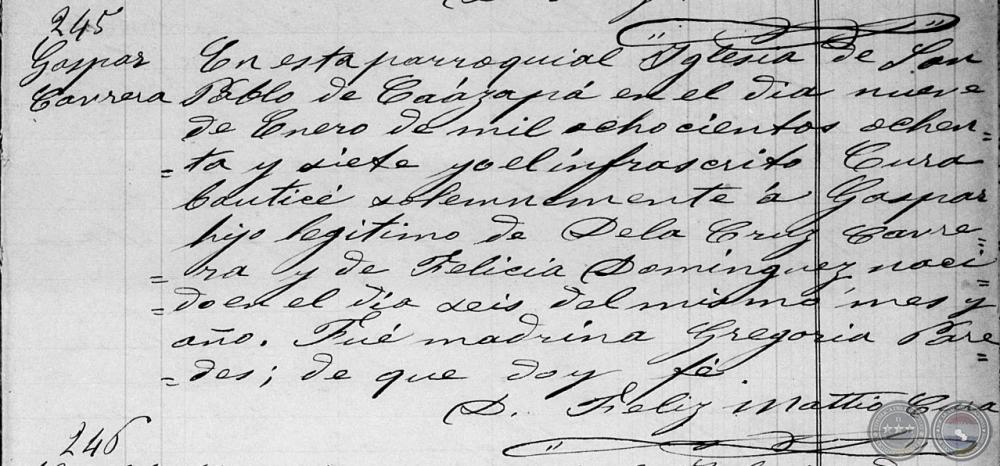 245
Gaspar
Cavrera
En esta parroquial Iglesia de San
Pablo de Caázapá en el dia nueve
de Enero de mil ochocientos ochen=
=ta y siete yo el infrascrito Cura
bauticé solemnemente á Gaspar
hijo legitimo de Dela Cruz Cavre=
=ra y de Felicia Dominguez naci=
=do en el dia seis del mismo mes y
año. Fué madrina Gregoria Pare=
=des; de que doy fé
D. Feliz Mattio Cura
246